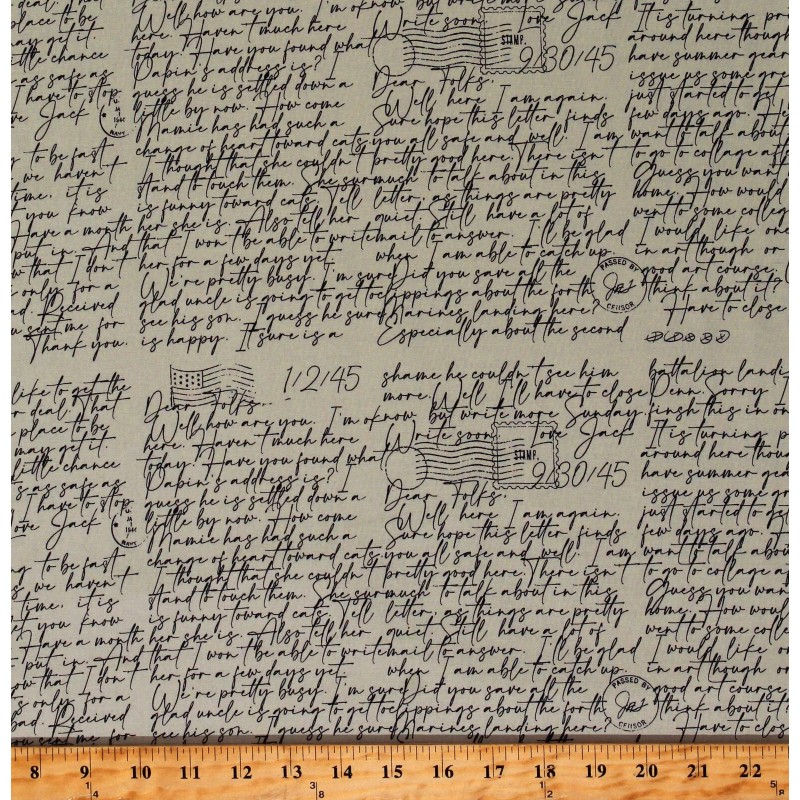 place to be
may get it.
little chance
as safe as
I have to stop
Love Jack
NAVY
to be fast
we haven't
time. it is
you know
Have a month
put in. And
that I don't
only for a
Received
sent me for
Thank you.
Well how are you. I'm ok now
here. Haven't much here
today. Have you found what
Papin's address is?
guess he is settled down a
little by now. How come
Mamie has had such a
change of heart toward cats
I thought that she couldn't
stand to touch them. She sur
is funny toward cats. Tell
her she is. Also tell her
that I won't be able to write
her for a few days yet.
We're pretty busy. I'm sure
glad uncle is going to get to
see his son. I guess he sure
is happy. It sure is a
but write more
Write soon Love Jack
STAMP.
9/30/45
Dear Folks.
Well here I am again.
Sure hope this letter finds
you all safe and well. I am
pretty good here. There isn't
much to talk about in this
letter, as things are pretty
quiet. Still have a lot of
mail to answer. I'll be glad
when I am able to catch up.
Did you save all the
clippings about the forth
Marines landing here?
Especially about the second
PASSED BY
It is turning
around here though
have summer gear
issue us some
just started to get
few days ago.
want to talk about
to go to collage
Guess you want
home. How would
went to some
I would like
in art though or
good art course.
think about it?
Have to close
1/2/45
shame he couldn't see him
more. Well I'll have to close
but write more Sunday.
Write soon Love Jack
battalion
Penn. Sorry I
finsh this in
like to get the
deal. That
place to be
may get it.
little chance
as safe as
I have to stop
Love Jack
NAVY
to be fast
we haven't
time. it is
you know
Have a month
put in. And
that I don't
only for a
Received
sent me for
Dear Folks.
Well how are you. I'm ok now
here. Haven't much here
today. Have you found what
Papin's address is? I
guess he is settled down a
little by now. How come
Mamie has had such a
change of heart toward cats
I thought that she couldn't
stand to touch them. She sur
is funny toward cats. Tell
her she is. Also tell her
that I won't be able to write
her for a few days yet.
We're pretty busy. I'm sure
glad uncle is going to get to
see his son. I guess he sure
STAMP.
9/30/45
Dear Folks.
Well here I am again.
Sure hope this letter finds
you all safe and well. I am
pretty good here. There isn't
much to talk about in this
letter, as things are pretty
quiet. Still have a lot of
mail to answer. I'll be glad
when I am able to catch up.
Did you save all the
clippings about the forth
Marines landing here?
PASSED BY
It is turning
around here though
have summer gear
issue us some
just started to get
few days ago.
want to talk about
to go to collage
Guess you want
home. How would
went to some
I would like
in art though or
good art course.
think about it?
Have to close
8 9 10 11 12 13 14 15 16 17 18 19 20 21 22
1/4 3/8 1/2 5/8